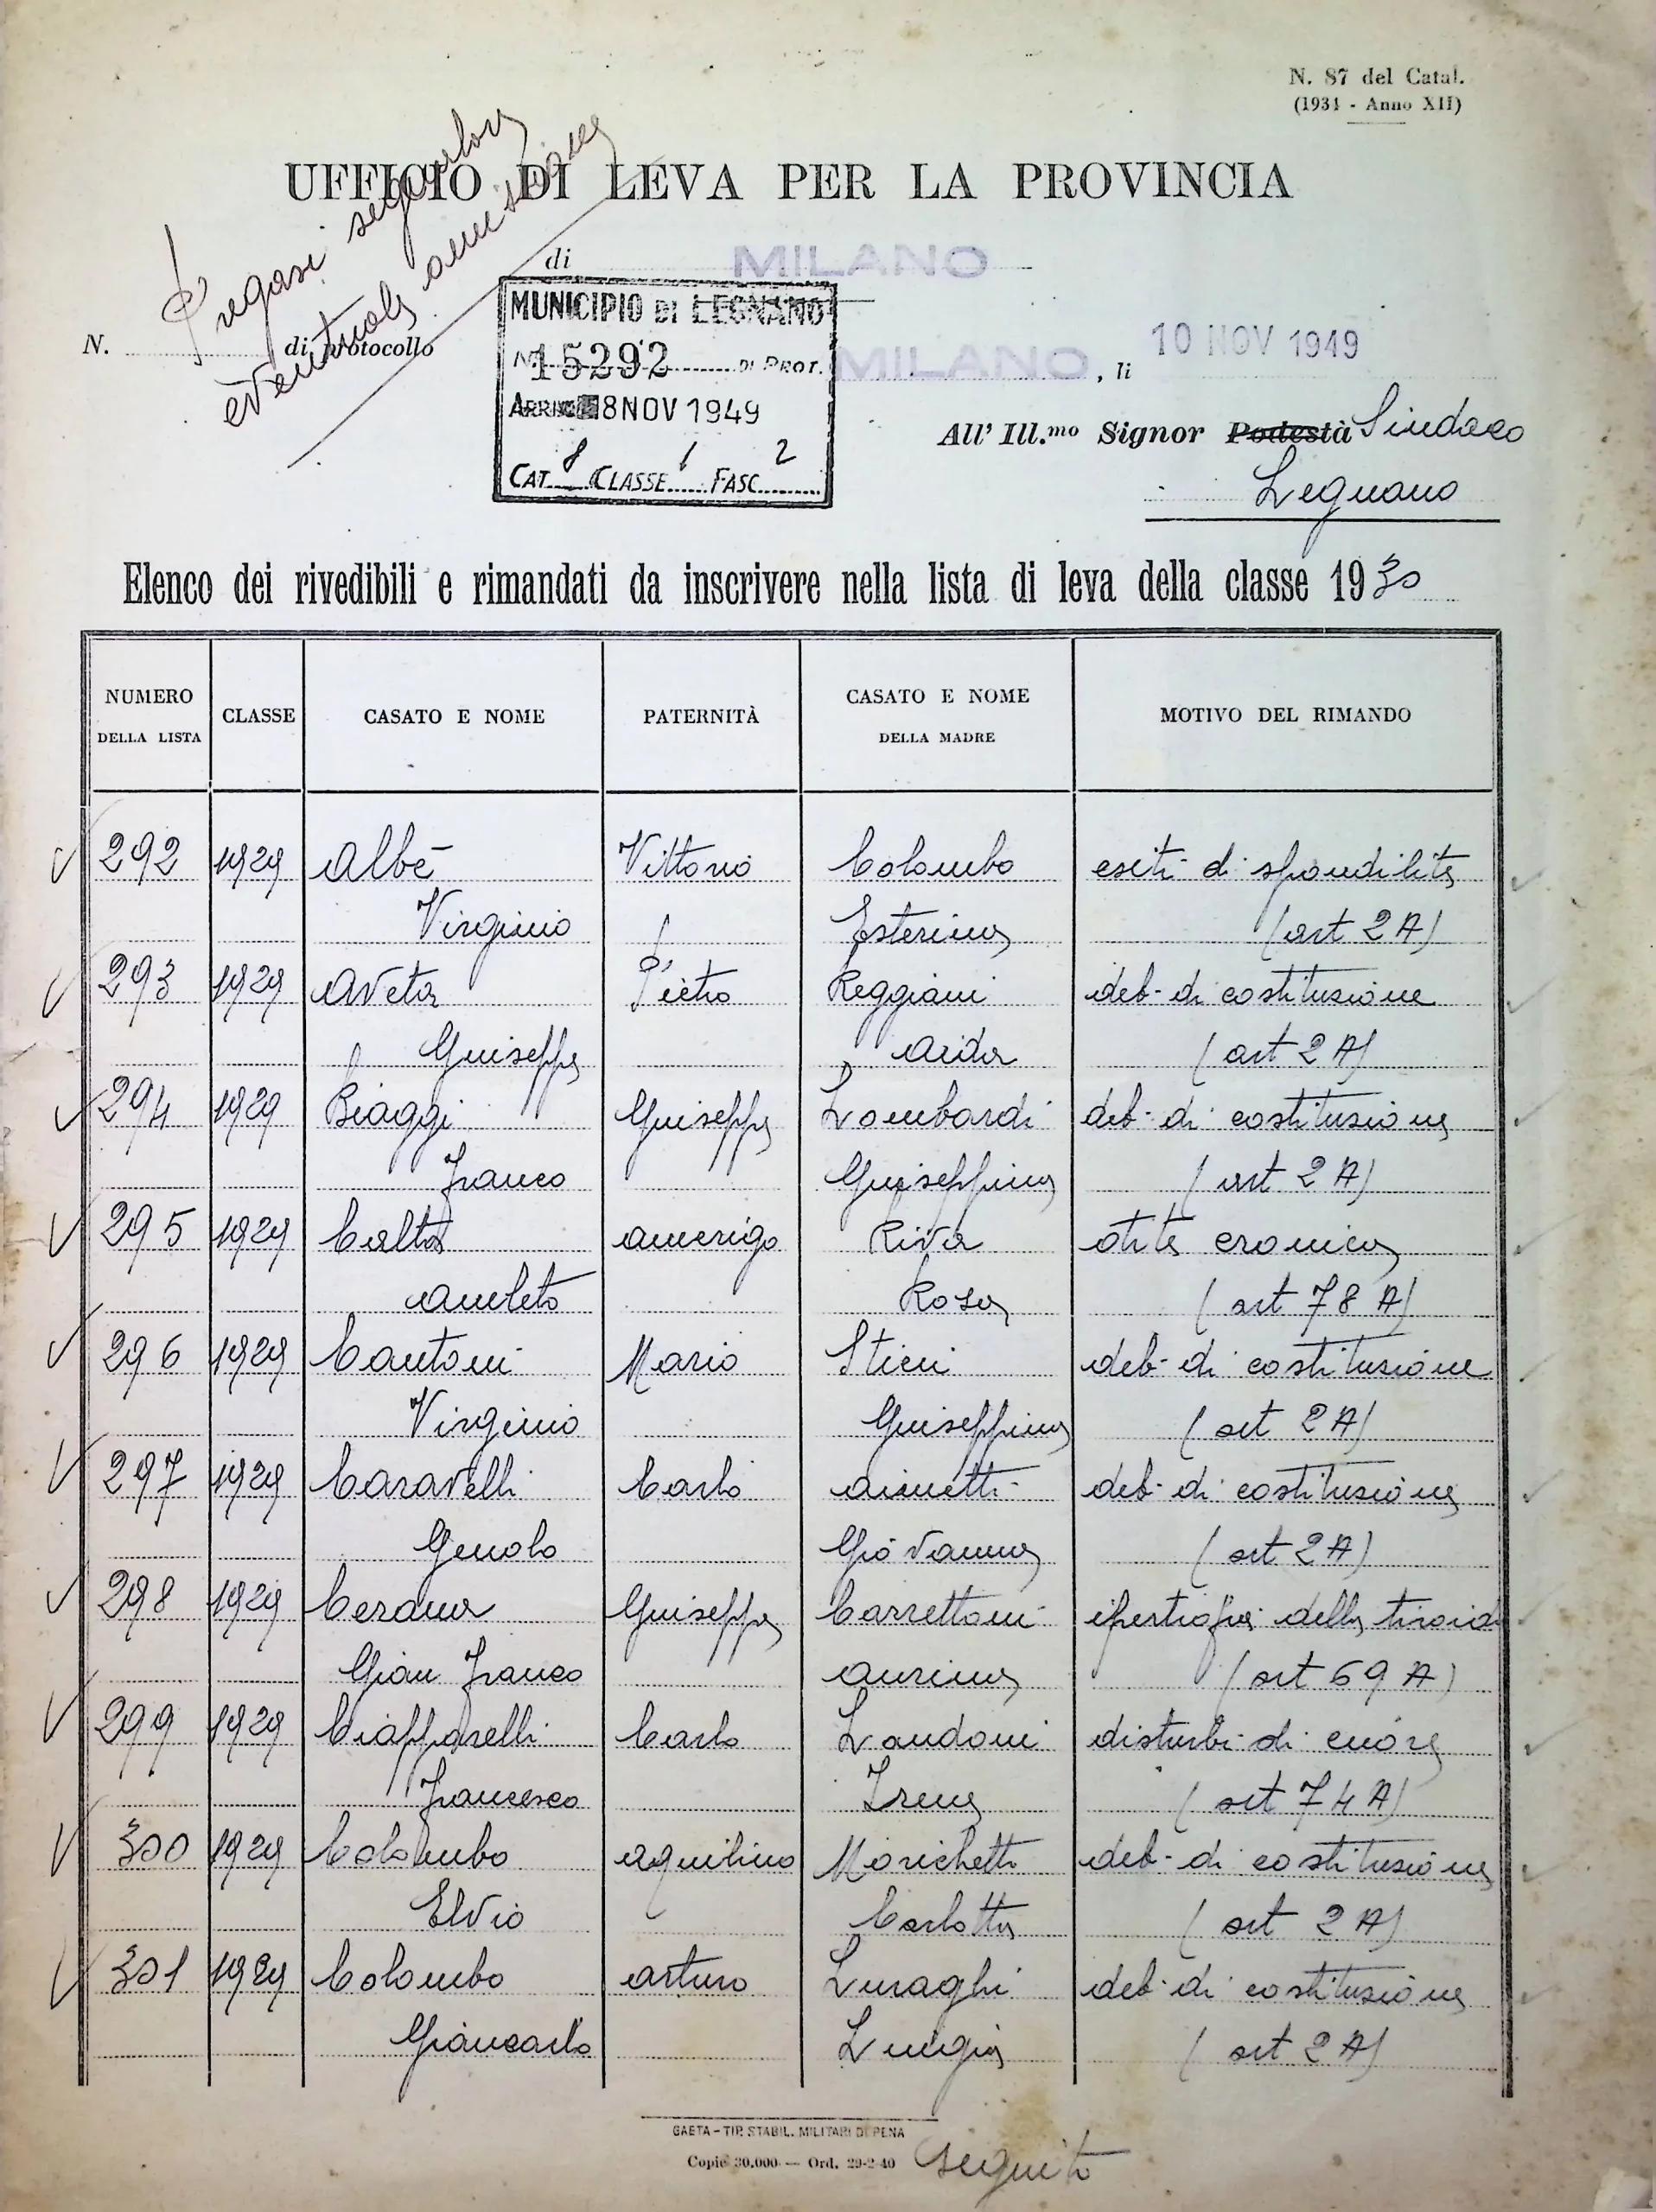 N. 87 del Catal.
(1934 - Anno XII)
Pregasi segnalare
eventuali omissioni
UFFICIO DI LEVA PER LA PROVINCIA
di MILANO
N. di protocollo
MUNICIPIO DI LEGNANO
N. 15292 DI PROT.
ARRIVO 18 NOV 1949
CAT. 8 CLASSE 1 FASC. 2
MILANO, li 10 NOV 1949
All' Ill.mo Signor Podestà Sindaco
Legnano
Elenco dei rivedibili e rimandati da inscrivere nella lista di leva della classe 1930
NUMERO DELLA LISTA CLASSE CASATO E NOME PATERNITÀ CASATO E NOME DELLA MADRE MOTIVO DEL RIMANDO
292 1929 Albè Vittorio Colombo esiti di spondilite
Virginio Esterina (art 2 A)
293 1929 Aveta Pietro Reggiani deb. di costituzione
Giuseppe Aida (art 2 A)
294 1929 Biaggi Giuseppe Lombardi deb. di costituzione
Franco Giuseppina (art 2 A)
295 1929 Calta Amerigo Riva otite cronica
Amleto Rosa (art 78 A)
296 1929 Cantoni Mario Stieni deb. di costituzione
Virginio Giuseppina (art 2 A)
297 1929 Caravelli Carlo deb. di costituzione
Genolo Giovanna (art 2 A)
298 1929 Cerana Giuseppe Carrettoni ipertrofia della tiroide
Gian Franco Aurina (art 69 A)
299 1929 Ciapparelli Carlo Landoni disturbi di cuore
Francesco Irene (art 74 A)
300 1929 Colombo Aquilino Morichetti deb. di costituzione
Elvio Carlotta (art 2 A)
301 1929 Colombo Arturo Luraghi deb. di costituzione
Giancarlo Luigia (art 2 A)
GAETA - TIP. STABIL. MILITARI DI PENA
Copie 30.000 — Ord. 29-2-40
seguito